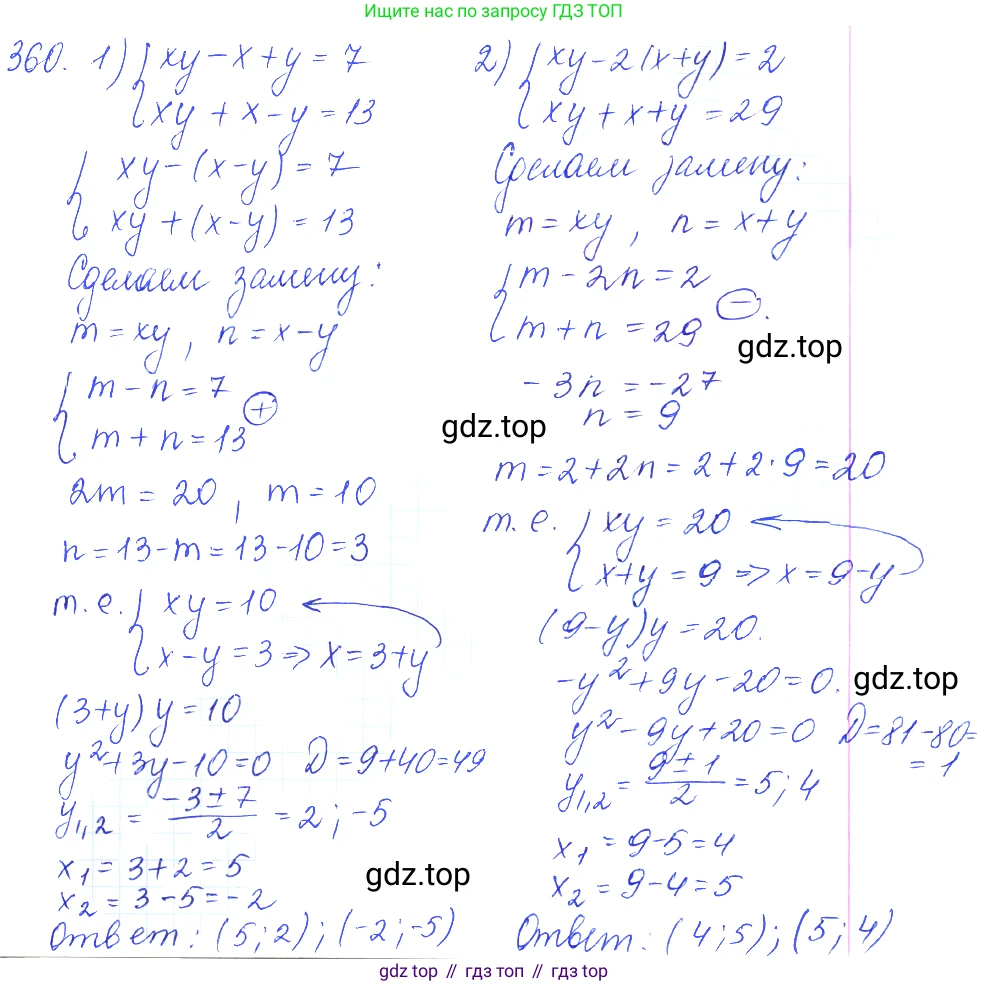 Ищите нас по запросу ГДЗ ТОП
360. 1) { xy - x + y = 7
xy + x - y = 13
{ xy - (x - y) = 7
xy + (x - y) = 13
Сделаем замену:
m = xy, n = x - y
{ m - n = 7
m + n = 13 (+)
2m = 20, m = 10
n = 13 - m = 13 - 10 = 3
т. е. { xy = 10
x - y = 3 => x = 3 + y
(3 + y) y = 10
y² + 3y - 10 = 0 D = 9 + 40 = 49
y1,2 = (-3 ± 7)/2 = 2; -5
x1 = 3 + 2 = 5
x2 = 3 - 5 = -2
Ответ: (5; 2); (-2; -5)
2) { xy - 2(x + y) = 2
xy + x + y = 29
Сделаем замену:
m = xy, n = x + y
{ m - 2n = 2
m + n = 29 (-).
-3n = -27
n = 9
m = 2 + 2n = 2 + 2·9 = 20
т. е. { xy = 20
x + y = 9 => x = 9 - y
(9 - y) y = 20.
-y² + 9y - 20 = 0.
y² - 9y + 20 = 0 D = 81 - 80 =
= 1
y1,2 = (9 ± 1)/2 = 5; 4
x1 = 9 - 5 = 4
x2 = 9 - 4 = 5
Ответ: (4; 5); (5; 4)
gdz.top
gdz.top
gdz.top
gdz.top
gdz.top // гдз топ // gdz top